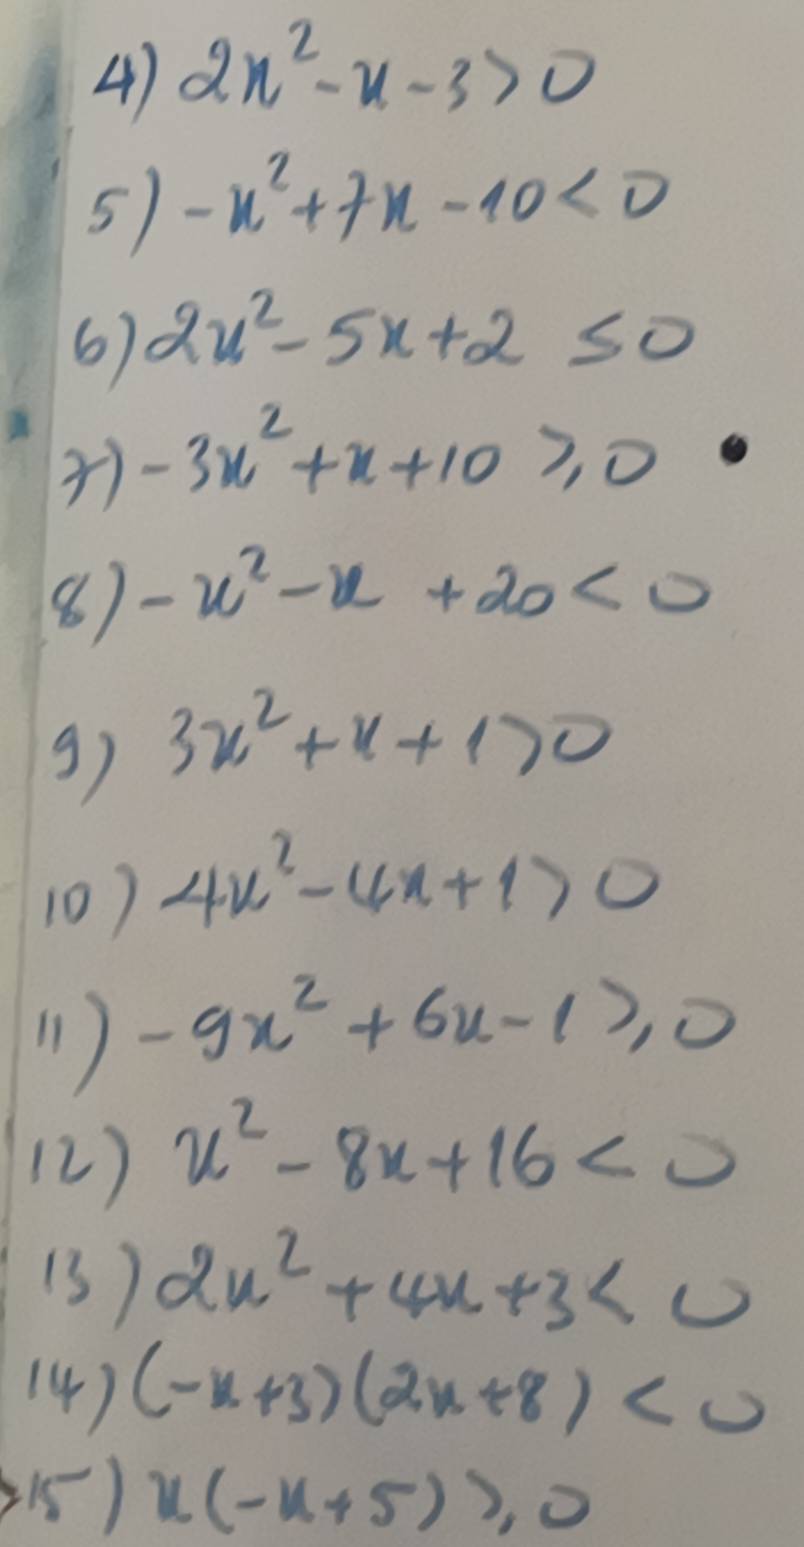 4) 2x² - x - 3 > 0
5) -x² + 7x - 10 < 0
6) 2x² - 5x + 2 ≤ 0
7) -3x² + x + 10 ≥ 0
8) -x² - x + 20 < 0
9) 3x² + x + 1 > 0
10) 4x² - 4x + 1 > 0
11) -9x² + 6x - 1 ≥ 0
12) x² - 8x + 16 < 0
13) 2x² + 4x + 3 < 0
14) (-x + 3)(2x + 8) < 0
15) x(-x + 5) ≥ 0